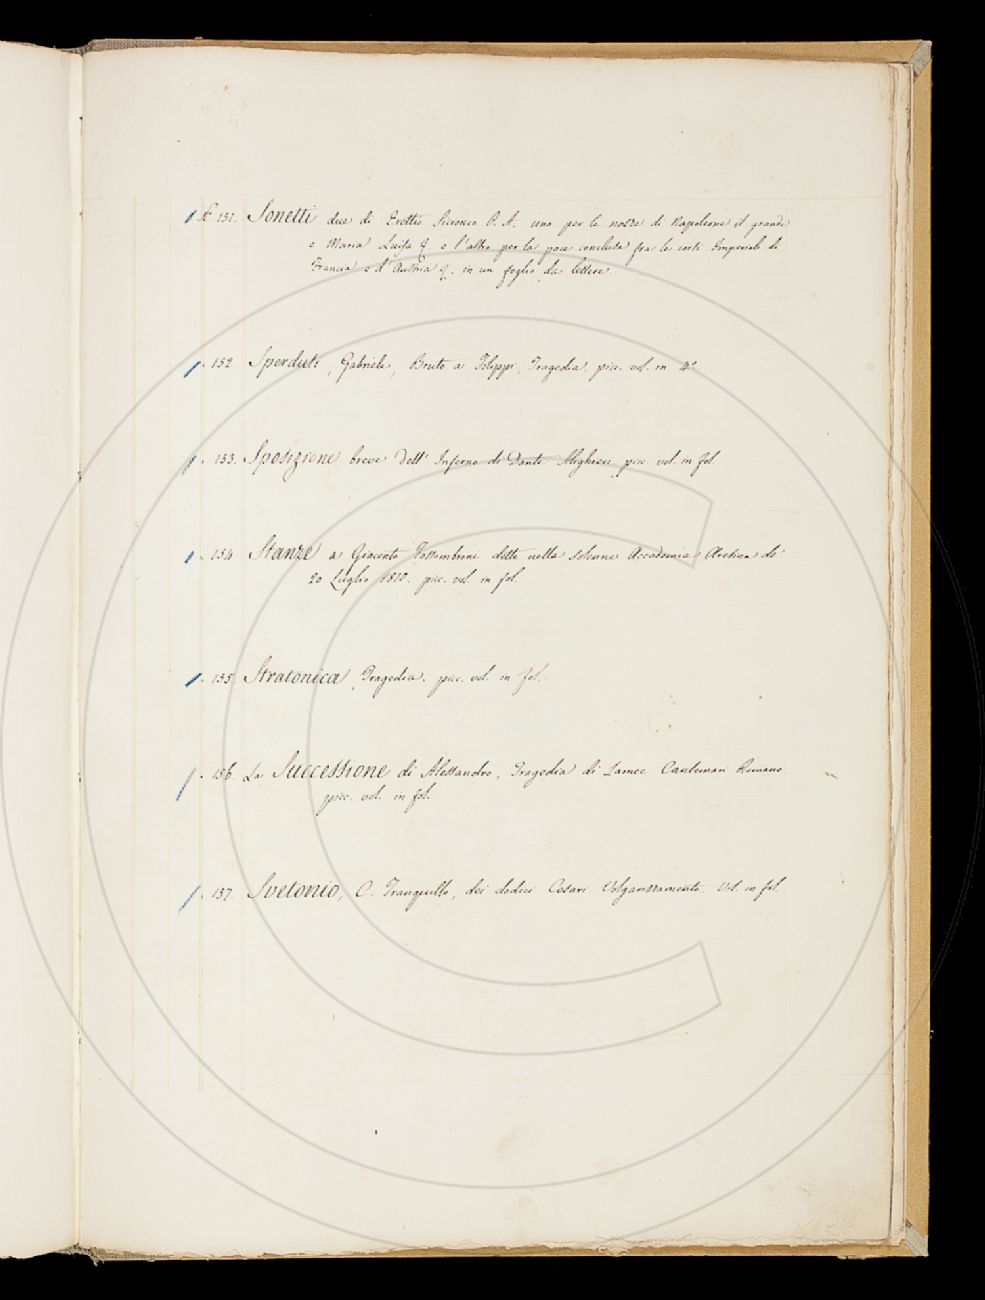 N.º 151. Sonetti due di Erettio Sicionio P. A. uno per le nozze di Napoleone il grande
e Maria Luisa &. e l'altro per la pace conclusa fra le corti Imperiale di
Francia e d'Austria &. in un foglio da lettere.
" 152. Sperduti, Gabriele, Bruto a Filippi, Tragedia. picc. vol. in 4.º
" 153. Sposizione breve dell'Inferno di Dante Alighieri picc. vol. in fol.
" 154. Stanze a Giacinto Fossombroni dette nella solenne Accademia Aretina de'
20 Luglio 1810. picc. vol. in fol.
" 155. Stratonica, Tragedia. picc. vol. in fol.
" 156. La Successione di Alessandro, Tragedia di Lamec Cantemari Romano
picc. vol. in fol.
" 157. Svetonio, C. Tranquillo, dei dodici Cesari Volgarizzamento. Vol. in fol.